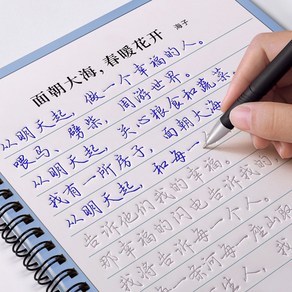 面朝大海，春暖花开
海子
从明天起，做一个幸福的人。
喂马、劈柴，周游世界。
从明天起，关心粮食和蔬菜，
我有一所房子，面朝大海
从明天起，和每一
告诉他们我的幸福。
那幸福的闪电告诉我的，
我将告诉每一个人。
一条河每一座山取